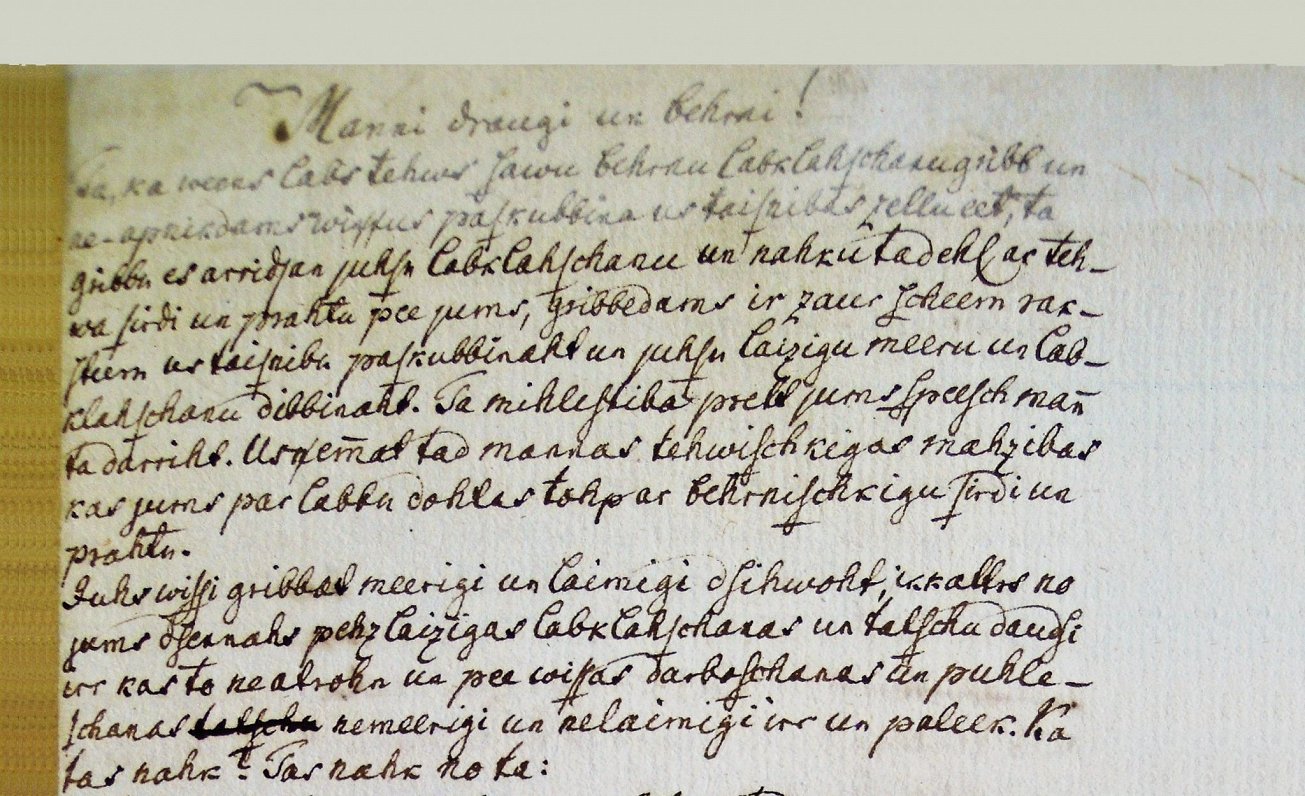 Manni draugi un behrni!
Ta, ka weens labs tehws sawu behrnu labklahschanu gribb un
ne-apnikdams wissus paskubbina us taisnibas zellu eet, ta
gribbu es arridsan juhsu labklahschanu un nahku tadehl ar teh-
wa sirdi un prahtu pee jums, gribbedams ir zaur scheem rak-
steem us taisnibu paskubbinaht un juhsu laizigu meeru un lab-
klahschanu dibbinaht. Ta mihlestiba prett jums speesch mañ
ta darriht. Usņem̃at tad mannas tehwischkigas mahzibas
kas jums par labbu dohtas tohp ar behrnischkigu sirdi un
prahtu.
Juhs wissi gribbat meerigi un laimigi dsihwoht, ikkattrs no
jums dsennahs pehz laizigas labklahschanas un tatschu daudsi
irr kas to neatrohn un pee wissas darboschanas un puhle-
schanas tatschu nemeerigi un nelaimigi irr un paleek. Ka
tas nahk? Tas nahk no ta: